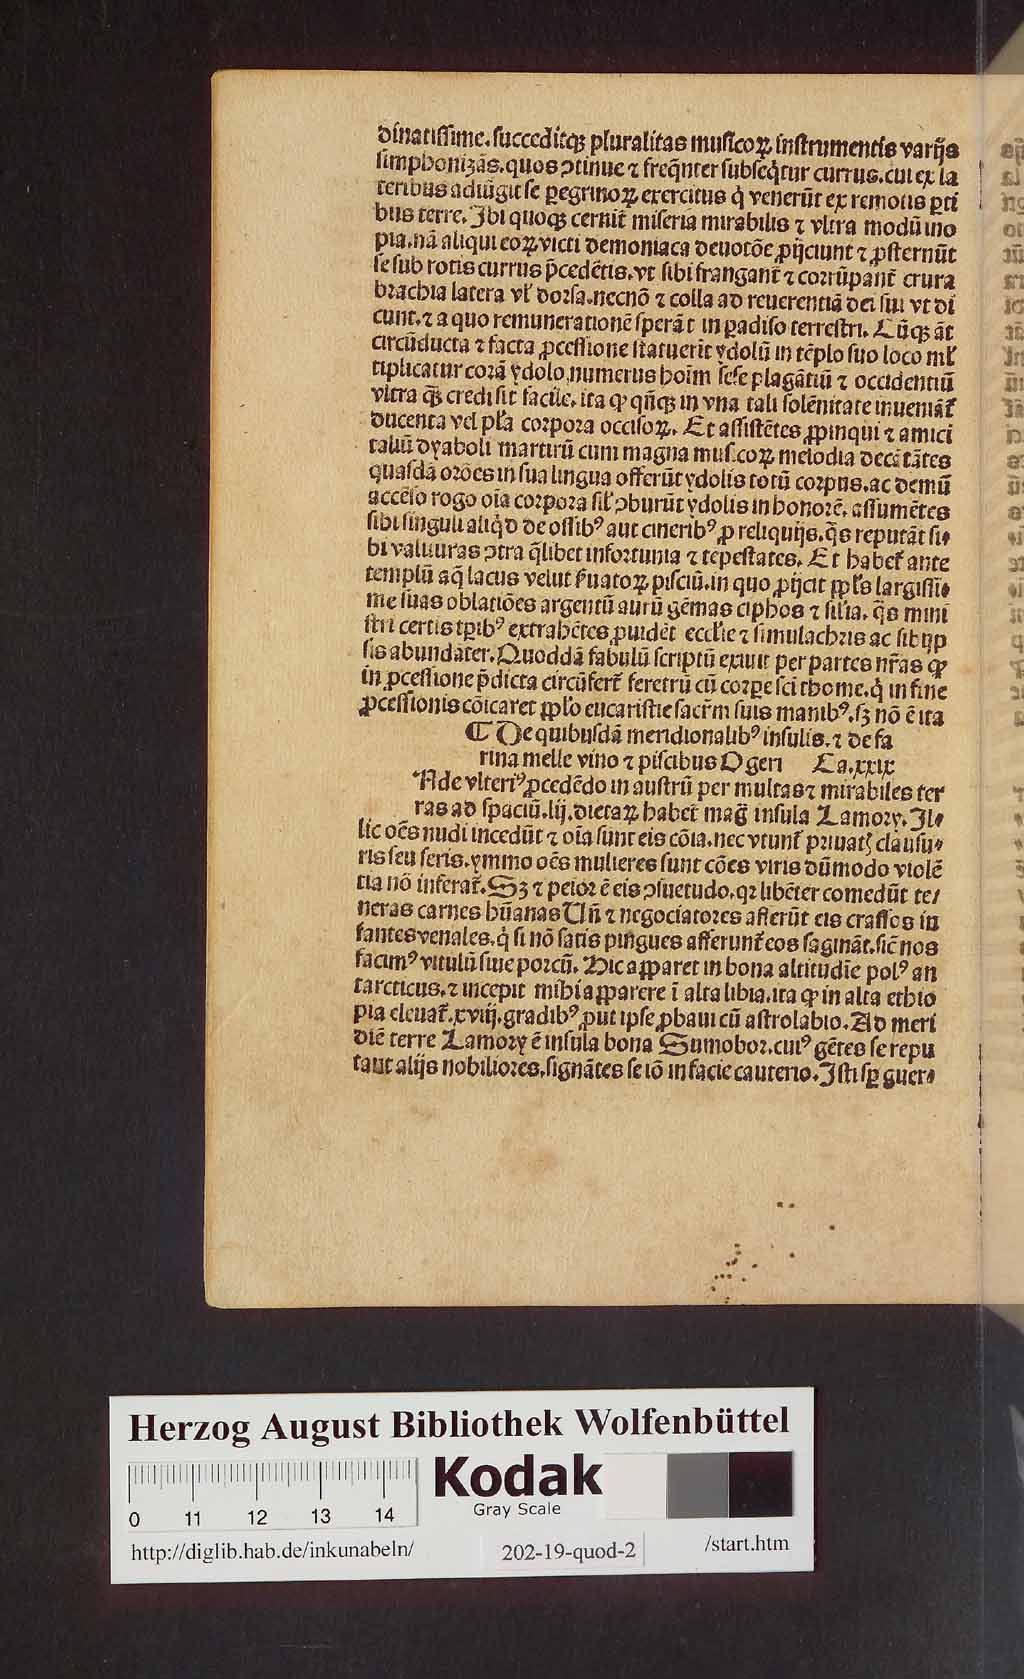 dinatissime. succeditqꝫ pluralitas musicoꝝ instrumentis varijs
simphonizās. quos ↄtinue ⁊ freq̄nter subseq̄tur currus. cui ex la
teribus adiūgit se ꝑegrinoꝝ exercitus q̇ venerūt ex remotis ꝑti
bus terre. Jbi quoqꝫ cernit̄ miseria mirabilis ⁊ vltra modū ino
pia. nā aliqui eoꝝ victi demoniaca deuotōe ꝓijciunt ⁊ ꝓsternūt
se sub rotis currus p̄cedētis. vt sibi frangant̄ ⁊ corrūpant̄ crura
brachia latera vl̓ dorsa. necnō ⁊ colla ad reuerentiā dei sui vt di
cunt. ⁊ a quo remunerationē sperāt in ꝑadiso terrestri. Cūqꝫ āt
circūducta ⁊ facta ꝓcessione statuerit ydolū in tēplo suo loco ml̓
tiplicatur corā ydolo numerus hoīm sese plagātiū ⁊ occidentiū
vltra qꝫ̄ credi sit facile. ita ꝙ qn̄qꝫ in vna tali solēnitate inueniāt̄
ducenta vel pl̓a corpora occisoꝝ. Et assistētes ꝓpinqui ⁊ amici
taliū dyaboli martirū cum magna musicoꝝ melodia decātātes
quasdā orōes in sua lingua offerūt ydolis totū corpus. ac demū
accēso rogo oīa corpora sil̓ ↄburūt ydolis in honorē. assumētes
sibi singuli aliq̇d de ossibꝰ aut cineribꝰ ꝓ reliquijs. q̄s reputāt si⸗
bi valituras ↄtra q̄libet infortunia ⁊ tēpestates. Et habet̄ ante
templū aq̄ lacus velut p̄uatoꝝ pisciū. in quo ꝓijcit ppl̓s largissi⸗
me suas oblatiōes argentū aurū gēmas ciphos ⁊ sil̓ia. q̄s mini
stri certis tꝑibꝰ extrahētes ꝓuidēt eccl̓ie ⁊ simulachris ac sibijp
sis abundāter. Quoddā fabulū scriptū exiuit per partes nr̄as ꝙ
in ꝓcessione p̄dicta circūfert̄ feretrū cū corꝑe sci thome. q̇ in fine
ꝓcessionis cōicaret ppl̓o eucaristie sacr̄m suis manibꝰ. sꝫ nō ē ita
¶ De quibusdā meridionalibꝰ insulis. ⁊ de fa
rina melle vino ⁊ piscibus Ogeri Ca. xxix
Ade vlteriꝰ ꝓcedēdo in austrū per multas ⁊ mirabiles ter
ras ad spaciū. lij. dietaꝝ habet̄ mag̃ insula Lamory. Jl⸗
lic oēs nudi incedūt ⁊ oīa sunt eis cōia. nec vtunt̄ priuatꝭ clausu⸗
ris seu seris. ymmo oēs mulieres sunt cōes viris dūmodo violē
tia nō inferat̄. Sꝫ ⁊ peior ē eis ↄsuetudo. qꝛ libēter comedūt te/
neras carnes hūanas Un̄ ⁊ negociatores afferūt eis crassos in
fantes venales. q̇ si nō satis pingues afferunt̄ eos sagināt. sic̄ nos
facimꝰ vitulū siue porcū. Hic apparet in bona altitudīe polꝰ an
tarcticus. ⁊ incepit mihi apparere ī alta libia. ita ꝙ in alta ethio
pia eleuat̄. xviij. gradibꝰ ꝓut ipse ꝓbaui cū astrolabio. Ad meri
diē terre Lamory ē insula bona Sumobor. cuiꝰ gētes se repu
tant alijs nobiliores. signātes se iō in facie cauterio. Jsti sꝑ guer⸗
Herzog August Bibliothek Wolfenbüttel
Kodak
Gray Scale
0 11 12 13 14
http://diglib.hab.de/inkunabeln/ 202-19-quod-2 /start.htm